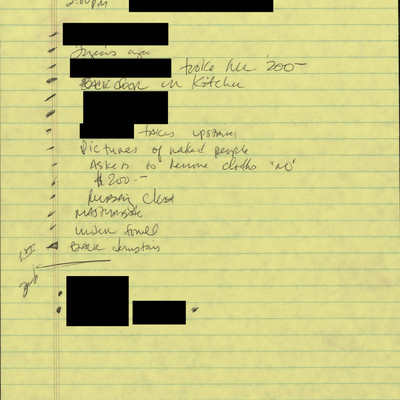 2:00pm
years ago
take her 200-
BACK DOOR in Kitchen
takes upstairs
Pictures of naked people
Asked to remove cloths "NO"
$200-
masturbate
under towel
BACK downstairs